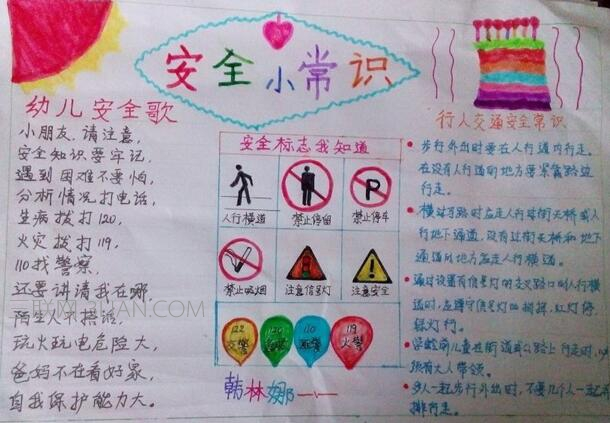 安全小常识
幼儿安全歌
小朋友,请注意,
安全知识要牢记,
遇到困难不要怕,
分析情况打电话,
生病拨打120,
火灾拨打119,
110找警察,
还要讲清我在哪,
陌生人不搭话,
玩火玩电危险大,
爸妈不在看好家,
自我保护能力大。
安全标志我知道
人行横道
禁止停留
禁止停车
禁止吸烟
注意信号灯
注意安全
122
交警
120
急救
110
匪警
119
火警
韩林娜
行人交通安全常识
步行外出时要在人行道内行走。
在没有人行道的地方要靠路边
行走。
横过马路时应走人行过街天桥或人
行地下通道,没有过街天桥和地下
通道的地方应走人行横道。
通过设置有信号灯的交叉路口或人行横
道时,应遵守信号灯的指挥,红灯停,
绿灯行。
学龄前儿童在街道或公路上行走时,
须有大人带领。
多人一起步行外出时,不要几个人一起并
排行走。